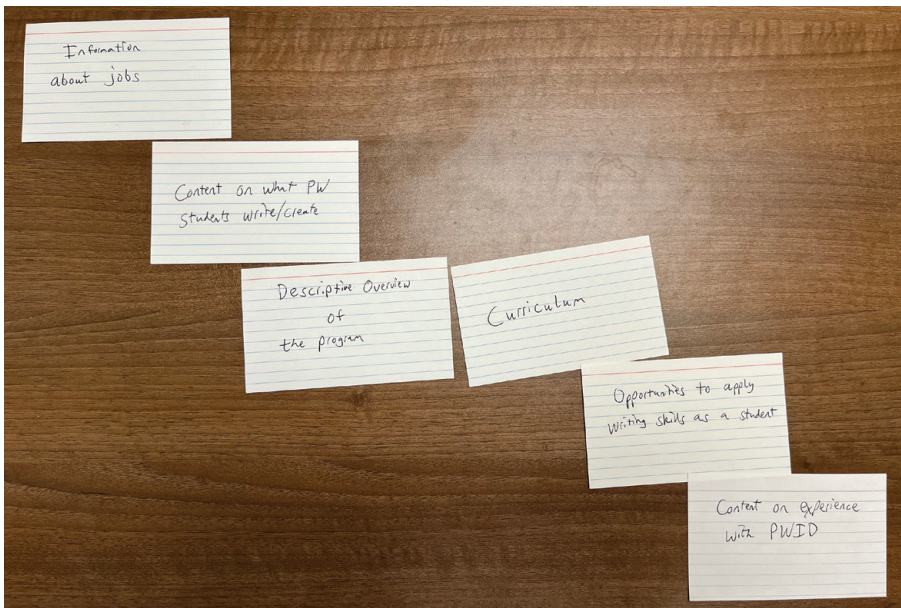 Information
about jobs
Content on what PW
Students write/create
Descriptive Overview
of
the program
Curriculum
Opportunities to apply
Writing skills as a student
Content on experience
with PWID